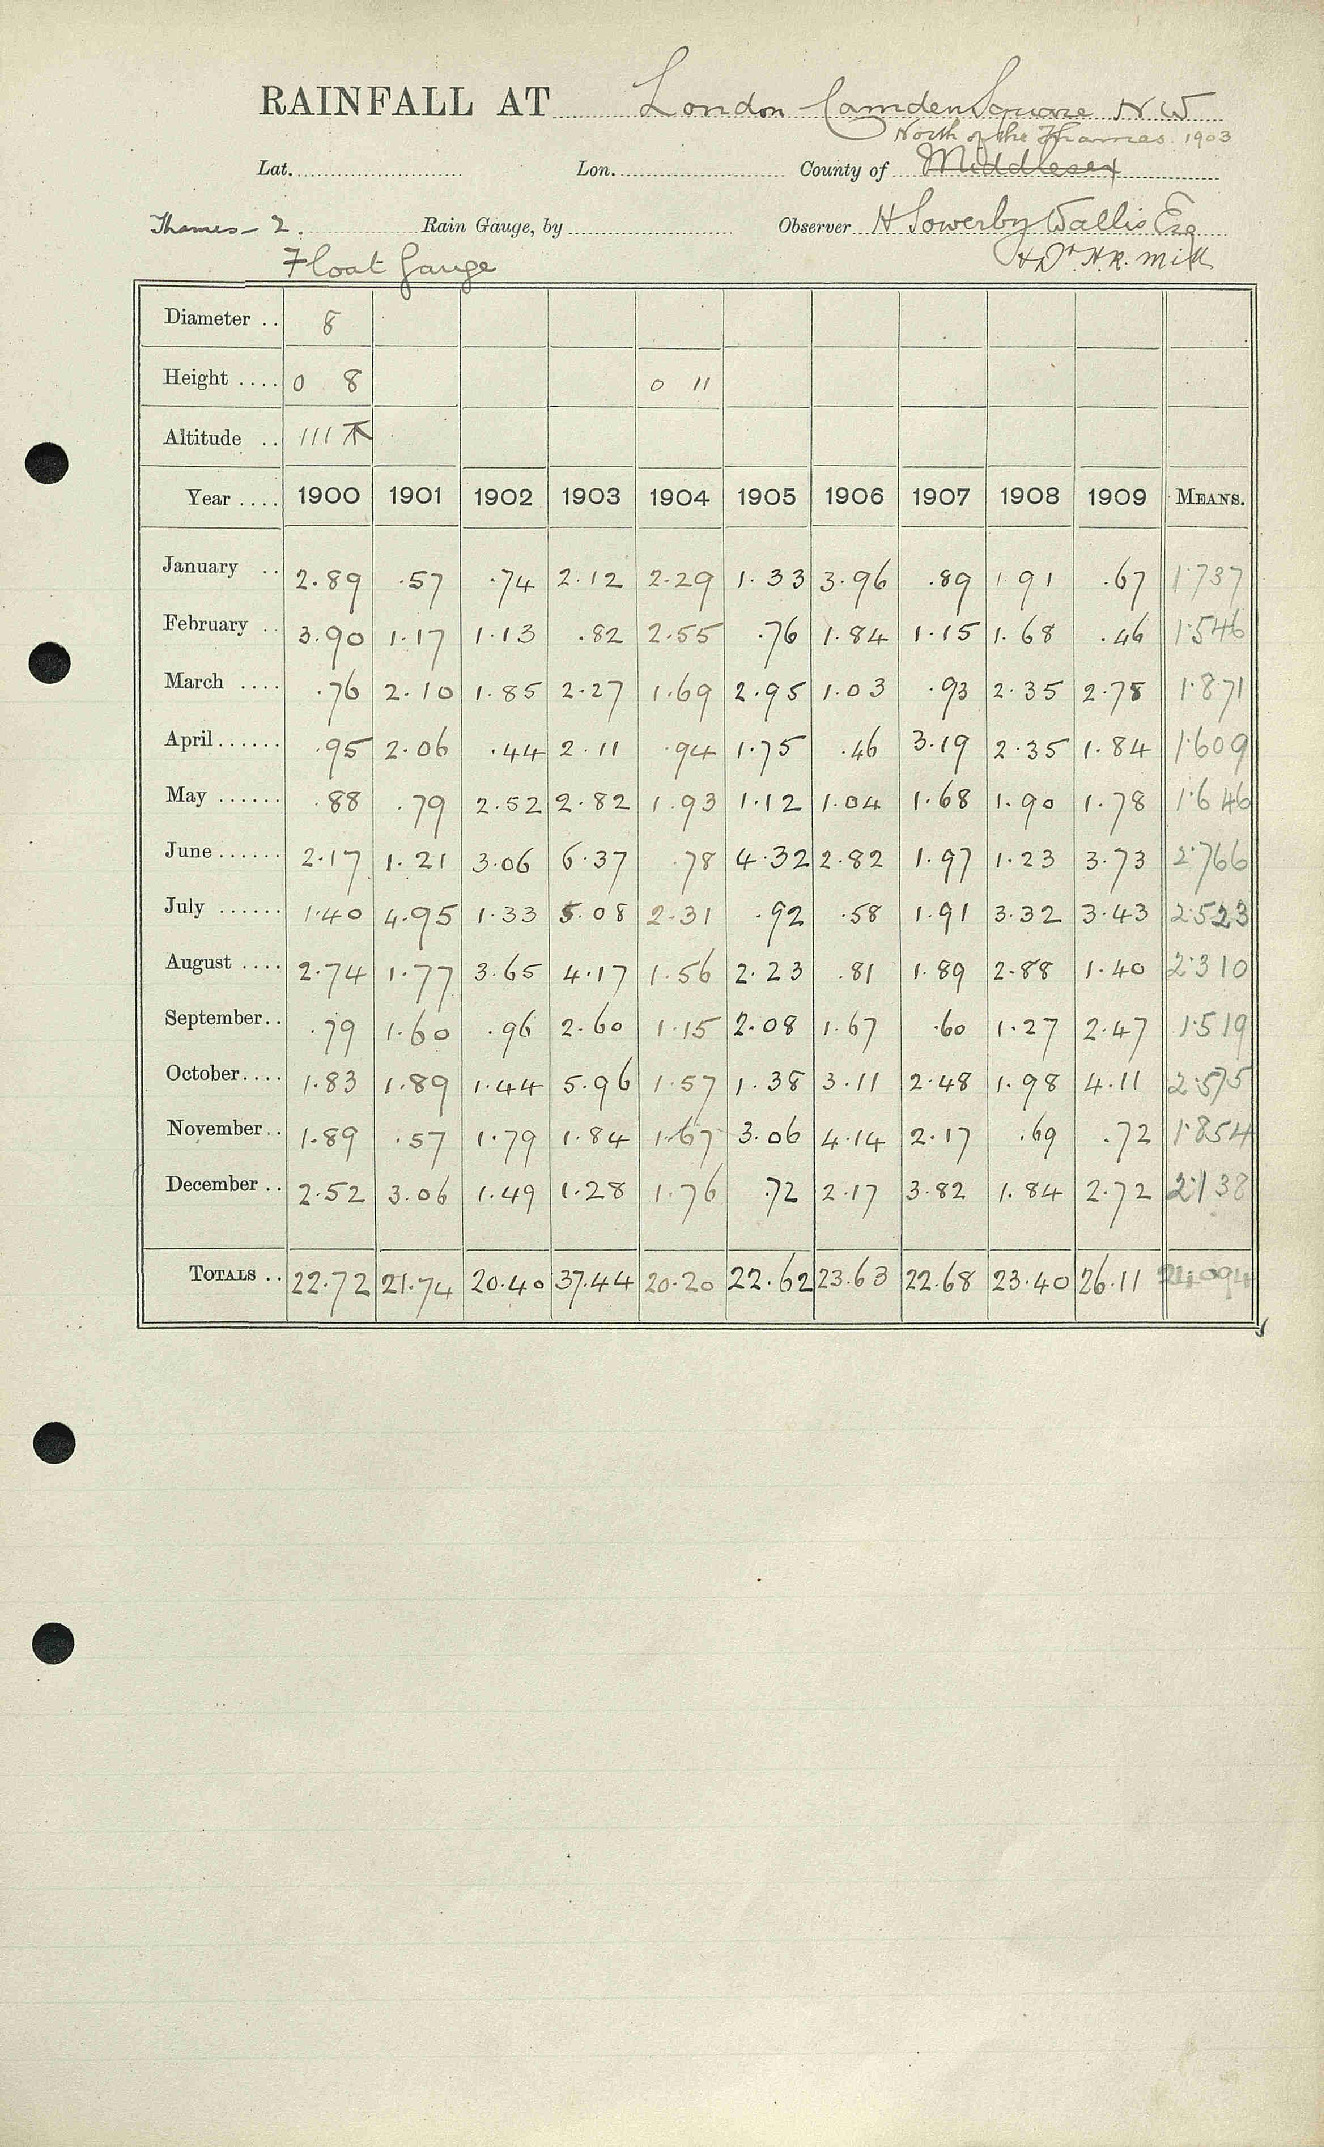 RAINFALL AT London Camden Square N W
North of the Thames. 1903
Lat. Lon. County of Middlesex
Thames - 2. Rain Gauge, by Observer H Sowerby Wallis Esq
Float Gauge & Dr. H.R. Mill
Diameter .. 8
Height .... 0 8 0 11
Altitude .. 111
Year .... 1900 1901 1902 1903 1904 1905 1906 1907 1908 1909 MEANS.
January .. 2.89 .57 .74 2.12 2.29 1.33 3.96 .89 1.91 .67 1.737
February .. 3.90 1.17 1.13 .82 2.55 .76 1.84 1.15 1.68 .46 1.546
March .... .76 2.10 1.85 2.27 1.69 2.95 1.03 .93 2.35 2.78 1.871
April...... .95 2.06 .44 2.11 .94 1.75 .46 3.19 2.35 1.84 1.609
May ...... .88 .79 2.52 2.82 1.93 1.12 1.04 1.68 1.90 1.78 1.646
June...... 2.17 1.21 3.06 6.37 .78 4.32 2.82 1.97 1.23 3.73 2.766
July ...... 1.40 4.95 1.33 5.08 2.31 .92 .58 1.91 3.32 3.43 2.523
August .... 2.74 1.77 3.65 4.17 1.56 2.23 .81 1.89 2.88 1.40 2.310
September.. .79 1.60 .96 2.60 1.15 2.08 1.67 .60 1.27 2.47 1.519
October.... 1.83 1.89 1.44 5.96 1.57 1.38 3.11 2.48 1.98 4.11 2.575
November.. 1.89 .57 1.79 1.84 1.67 3.06 4.14 2.17 .69 .72 1.854
December .. 2.52 3.06 1.49 1.28 1.76 .72 2.17 3.82 1.84 2.72 2.138
TOTALS .. 22.72 21.74 20.40 37.44 20.20 22.62 23.63 22.68 23.40 26.11 24.094